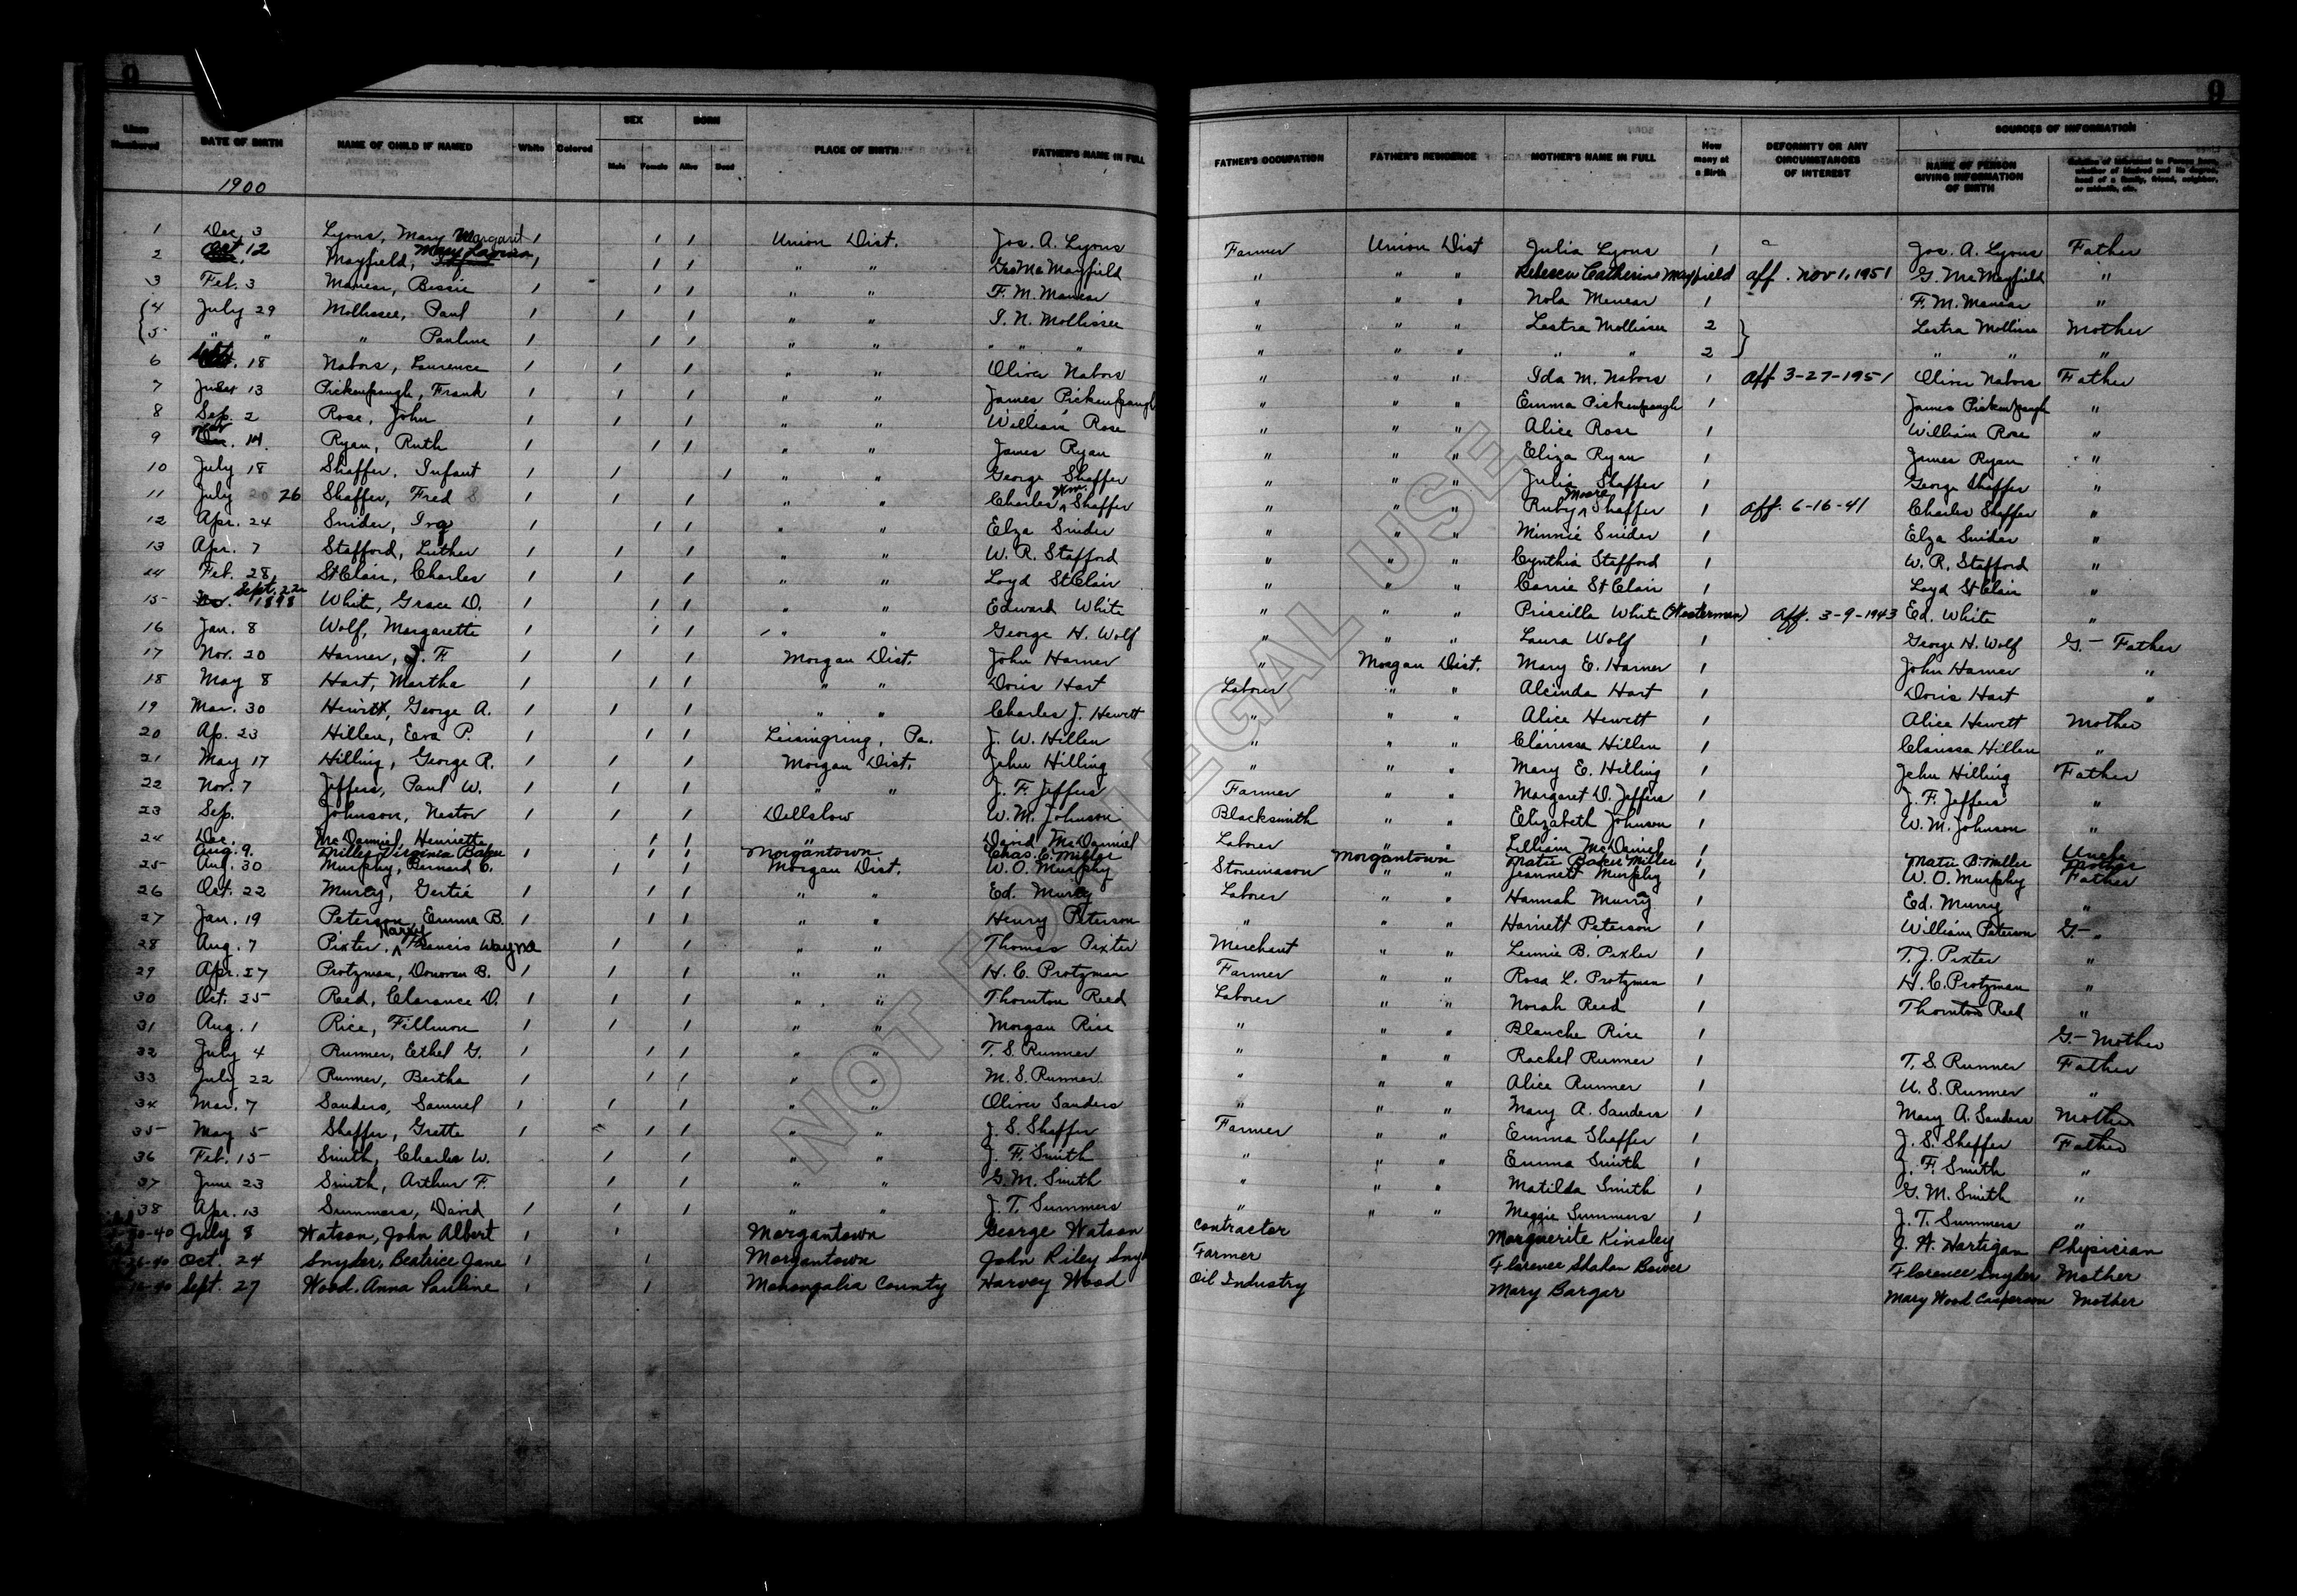 9 9
Lines Numbered DATE OF BIRTH NAME OF CHILD IF NAMED White Colored SEX Male Female BORN Alive Dead PLACE OF BIRTH FATHER'S NAME IN FULL FATHER'S OCCUPATION FATHER'S RESIDENCE MOTHER'S NAME IN FULL How many at a Birth DEFORMITY OR ANY CIRCUMSTANCES OF INTEREST SOURCES OF INFORMATION NAME OF PERSON GIVING INFORMATION OF BIRTH Relation of Informant to Person born, whether of kindred and its degree, head of a family, friend, neighbor, or midwife, etc.
1900
1 Dec. 3 Lyons, Mary Margaret 1 1 1 Union Dist. Jos. A. Lyons Farmer Union Dist Julia Lyons 1 Jos. A. Lyons Father
2 Oct 12 Mayfield, Mary 1 1 1 " " Geo Mc Mayfield " " " Rebecca Catherine Mayfield aff. Nov 1, 1951 G. Mc Mayfield "
3 Feb. 3 Manear, Bessie 1 1 1 " " F. M. Manear " " " Nola Menear 1 F. M. Manear "
4 July 29 Mollisee, Paul 1 1 1 " " I. N. Mollisee " " " Lestra Mollisee 2 Lestra Mollisee Mother
5 " " " Pauline 1 1 1 " " " " " " " " " " 2 " " "
6 Sept. 18 Nabors, Laurence 1 1 1 " " Oliver Nabors " " " Ida M. Nabors 1 aff 3-27-1951 Oliver Nabors Father
7 June 13 Pickenpaugh, Frank 1 1 1 " " James Pickenpaugh " " " Emma Pickenpaugh 1 James Pickenpaugh "
8 Sep. 2 Rose, John 1 1 1 " " William Rose " " " Alice Rose 1 William Rose "
9 Nov. 14. Ryan, Ruth 1 1 1 " " James Ryan " " " Eliza Ryan 1 James Ryan "
10 July 18 Shaffer, Infant 1 1 1 " " George Shaffer " " " Julia Shaffer 1 George Shaffer "
11 July 26 Shaffer, Fred S 1 1 1 " " Charles Wm. Shaffer " " " Ruby Moore Shaffer 1 aff. 6-16-41 Charles Shaffer "
12 Apr. 24 Snider, Iva 1 1 1 " " Elza Snider " " " Minnie Snider 1 Elza Snider "
13 Apr. 7 Stafford, Luther 1 1 1 " " W. R. Stafford " " " Cynthia Stafford 1 W. R. Stafford "
14 Feb. 28, St Clair, Charles 1 1 1 " " Loyd St Clair " " " Carrie St Clair 1 Loyd St Clair "
15 Sept. 22 1898 White, Grace D. 1 1 1 " " Edward White " " " Priscilla White (Westerman) aff. 3-9-1943 Ed. White "
16 Jan. 8 Wolf, Margarette 1 1 1 " " George H. Wolf " " " Laura Wolf 1 George H. Wolf G.- Father
17 Nov. 20 Harner, J. F. 1 1 1 Morgan Dist. John Harner " Morgan Dist. Mary E. Harner 1 John Harner "
18 May 8 Hart, Martha 1 1 1 " " Doris Hart Laborer " " Alcinda Hart 1 Doris Hart "
19 Mar. 30 Hewitt, George A. 1 1 1 " " Charles J. Hewett " " " Alice Hewett 1 Alice Hewett Mother
20 Ap. 23 Hillen, Eva P. 1 1 1 Leisingring, Pa. J. W. Hillen " " " Clarissa Hillen 1 Clarissa Hillen "
21 May 17 Hilling, George R. 1 1 1 Morgan Dist. Jehu Hilling " " " Mary E. Hilling 1 Jehu Hilling Father
22 Nov. 7 Jeffers, Paul W. 1 1 1 " " J. F. Jeffers Farmer " " Margaret D. Jeffers 1 J. F. Jeffers "
23 Sep. Johnson, Nestor 1 1 1 Dellslow W. M. Johnson Blacksmith " " Elizabeth Johnson 1 W. M. Johnson "
24 Dec. McDaniel, Henrietta 1 1 " David McDaniel Laborer " " Lillian McDaniel 1 Uncle
Aug. 9. Miller, Virginia Baker 1 1 1 Morgantown Chas. C. Miller Morgantown Matie Baker Miller 1 Matie B. Miller Mother
25 Aug. 30 Murphy, Bernard C. 1 1 Morgan Dist. W. O. Murphy Stonemason " " Jeannett Murphy 1 W. O. Murphy Father
26 Oct. 22 Murry, Gertie 1 1 1 " " Ed. Murry Laborer " " Hannah Murry 1 Ed. Murry "
27 Jan. 19 Peterson, Emma B. 1 1 1 " " Henry Peterson " " " Harriett Peterson 1 William Peterson G.- "
28 Aug. 7 Pixter, Harry Francis Wayne 1 1 " " Thomas Pixter Merchant " " Lennie B. Pixler 1 T. J. Pixter "
29 Apr. 27 Protzman, Donovan B. 1 1 1 " " H. C. Protzman Farmer " " Rosa L. Protzman 1 H. C. Protzman "
30 Oct. 25 Reed, Clarance D. 1 1 1 " " Thornton Reed Laborer " " Norah Reed 1 Thornton Reed "
31 Aug. 1 Rice, Fillmon 1 1 1 " " Morgan Rice " " " Blanche Rice 1 G.- Mother
32 July 4 Runner, Ethel G. 1 1 1 " " T. S. Runner " " " Rachel Runner 1 T. S. Runner Father
33 July 22 Runner, Bertha 1 1 1 " " M. S. Runner " " " Alice Runner 1 U. S. Runner "
34 Mar. 7 Sanders, Samuel 1 1 1 " " Oliver Sanders " " " Mary A. Sanders 1 Mary A. Sanders Mother
35 May 5 Shaffer, Gretta 1 1 1 " " J. S. Shaffer Farmer " " Emma Shaffer 1 J. S. Shaffer Father
36 Feb. 15 Smith, Charles W. 1 1 " " J. F. Smith " " " Emma Smith 1 J. F. Smith "
37 June 23 Smith, Arthur F. 1 1 " " G. M. Smith " " " Matilda Smith 1 G. M. Smith "
38 Apr. 13 Summers, David 1 1 1 " " J. T. Summers " " " Maggie Summers 1 J. T. Summers "
July 8 Watson, John Albert 1 1 Morgantown George Watson Contractor Marguerite Kinsley J. A. Hartigan Physician
Oct. 24 Snyder, Beatrice Jane 1 1 Morgantown John Riley Farmer Florence Shahan Bower Florence Snyder Mother
Sept. 27 Wood, Anna Pauline 1 1 Monongalia County Harvey Wood Oil Industry Mary Bargar Mary Wood Casperson Mother
NOT FOR LEGAL USE